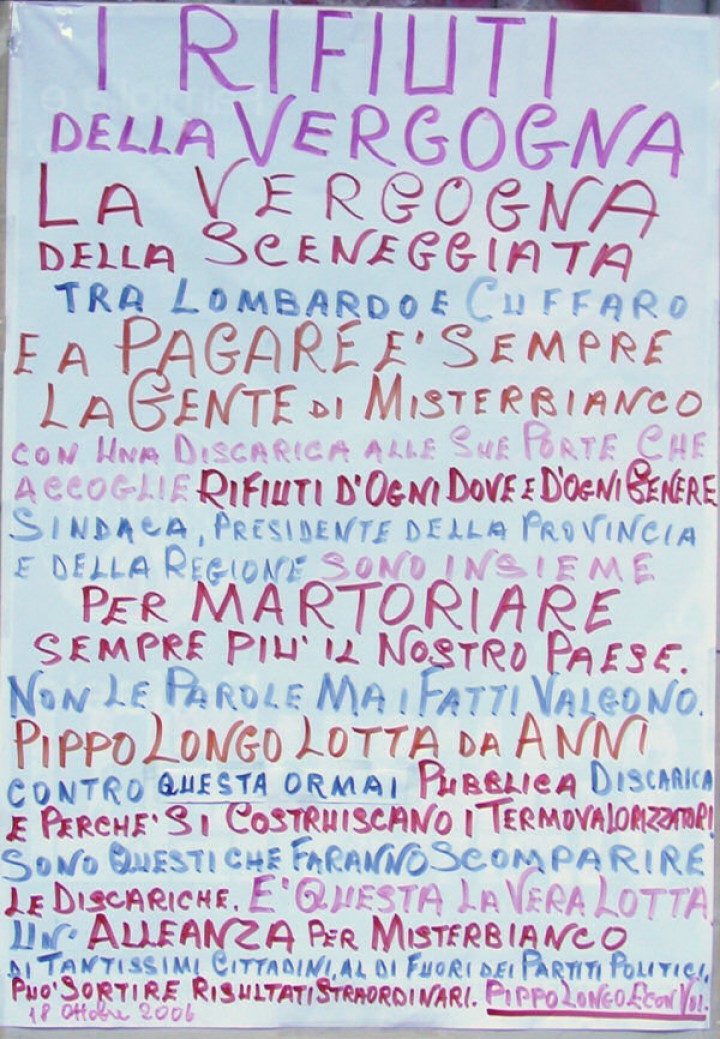 I RIFIUTI
DELLA VERGOGNA
LA VERGOGNA
DELLA SCENEGGIATA
TRA LOMBARDO E CUFFARO
E A PAGARE E' SEMPRE
LA GENTE DI MISTERBIANCO
CON UNA DISCARICA ALLE SUE PORTE CHE
ACCOGLIE RIFIUTI D'OGNI DOVE E D'OGNI GENERE
SINDACA, PRESIDENTE DELLA PROVINCIA
E DELLA REGIONE SONO INSIEME
PER MARTORIARE
SEMPRE PIU' IL NOSTRO PAESE.
NON LE PAROLE MA I FATTI VALGONO.
PIPPO LONGO LOTTA DA ANNI
CONTRO QUESTA ORMAI PUBBLICA DISCARICA
E PERCHE' SI COSTRUISCANO I TERMOVALORIZZATORI
SONO QUESTI CHE FARANNO SCOMPARIRE
LE DISCARICHE. E' QUESTA LA VERA LOTTA
UN' ALLEANZA PER MISTERBIANCO
DI TANTISSIMI CITTADINI, AL DI FUORI DEI PARTITI POLITICI,
PUO' SORTIRE RISULTATI STRAORDINARI. PIPPO LONGO E' CON VOI.
18 Ottobre 2006